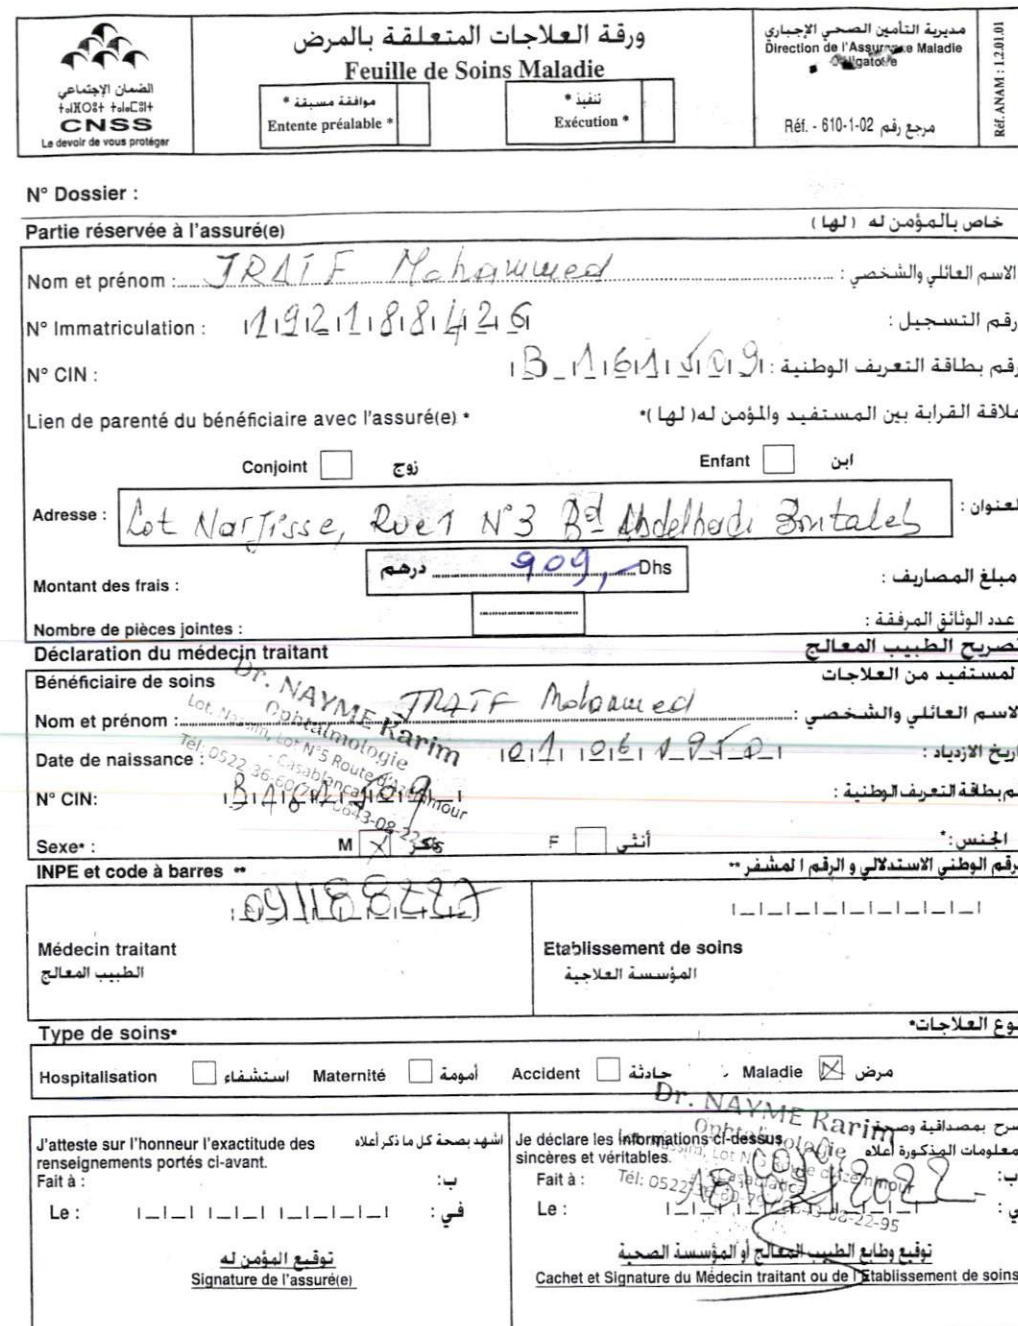 الضمان الإجتماعي
ⵜⴰⵏⴼⵔⵓⵜ ⵜⴰⵎⵜⵜⵉⵜ
CNSS
Le devoir de vous protéger
ورقة العلاجات المتعلقة بالمرض
Feuille de Soins Maladie
موافقة مسبقة *
Entente préalable *
تنفيذ *
Exécution *
مديرية التأمين الصحي الإجباري
Direction de l'Assurance Maladie
Obligatoire
Réf. - 610-1-02 مرجع رقم
Réf. ANAM : 1.2.01.01
N° Dossier :
Partie réservée à l'assuré(e) خاص بالمؤمن له (لها)
Nom et prénom : TRAIF Mohammed الاسم العائلي والشخصي :
N° Immatriculation : 192188426 رقم التسجيل :
N° CIN : B 161509 رقم بطاقة التعريف الوطنية :
Lien de parenté du bénéficiaire avec l'assuré(e) * علاقة القرابة بين المستفيد والمؤمن له( لها )*
Conjoint زوج Enfant ابن
Adresse : Lot Narjisse, Rue 1 N°3 Bd Abdelhadi Boutaleb العنوان :
Montant des frais : درهم 909,- Dhs مبلغ المصاريف :
Nombre de pièces jointes : عدد الوثائق المرفقة :
Déclaration du médecin traitant تصريح الطبيب المعالج
Bénéficiaire de soins المستفيد من العلاجات
Nom et prénom : TRAIF Mohammed الاسم العائلي والشخصي :
Date de naissance : 01 06 1950 تاريخ الازدياد :
N° CIN: B161509 رقم بطاقة التعريف الوطنية :
Dr. NAYME Karim
Ophtalmologie
Lot. Nassim, Lot N°5 Route d'Azemmour
- Casablanca
Tél: 0522-36-60-79 / 0643-08-22-95
Sexe* : M X ذكر F أنثى الجنس :*
INPE et code à barres ** الرقم الوطني الاستدلالي و الرقم المشفر **
091188227
Médecin traitant
الطبيب المعالج
Etablissement de soins
المؤسسة العلاجية
Type de soins* نوع العلاجات*
Hospitalisation استشفاء Maternité أمومة Accident حادثة Maladie X مرض
J'atteste sur l'honneur l'exactitude des اشهد بصحة كل ما ذكر أعلاه
renseignements portés ci-avant.
Fait à : ب:
Le : في :
توقيع المؤمن له
Signature de l'assuré(e)
Je déclare les informations ci-dessus أصرح بمصداقية وصحة
sincères et véritables. المعلومات المذكورة أعلاه
Fait à : ب:
Le : في :
Dr. NAYME Karim
Ophtalmologie
Lot. Nassim, Lot N°5 Route d'Azemmour
- Casablanca
Tél: 0522-36-60-79 / 0643-08-22-95
توقيع وطابع الطبيب المعالج أو المؤسسة الصحية
Cachet et Signature du Médecin traitant ou de l'Etablissement de soins